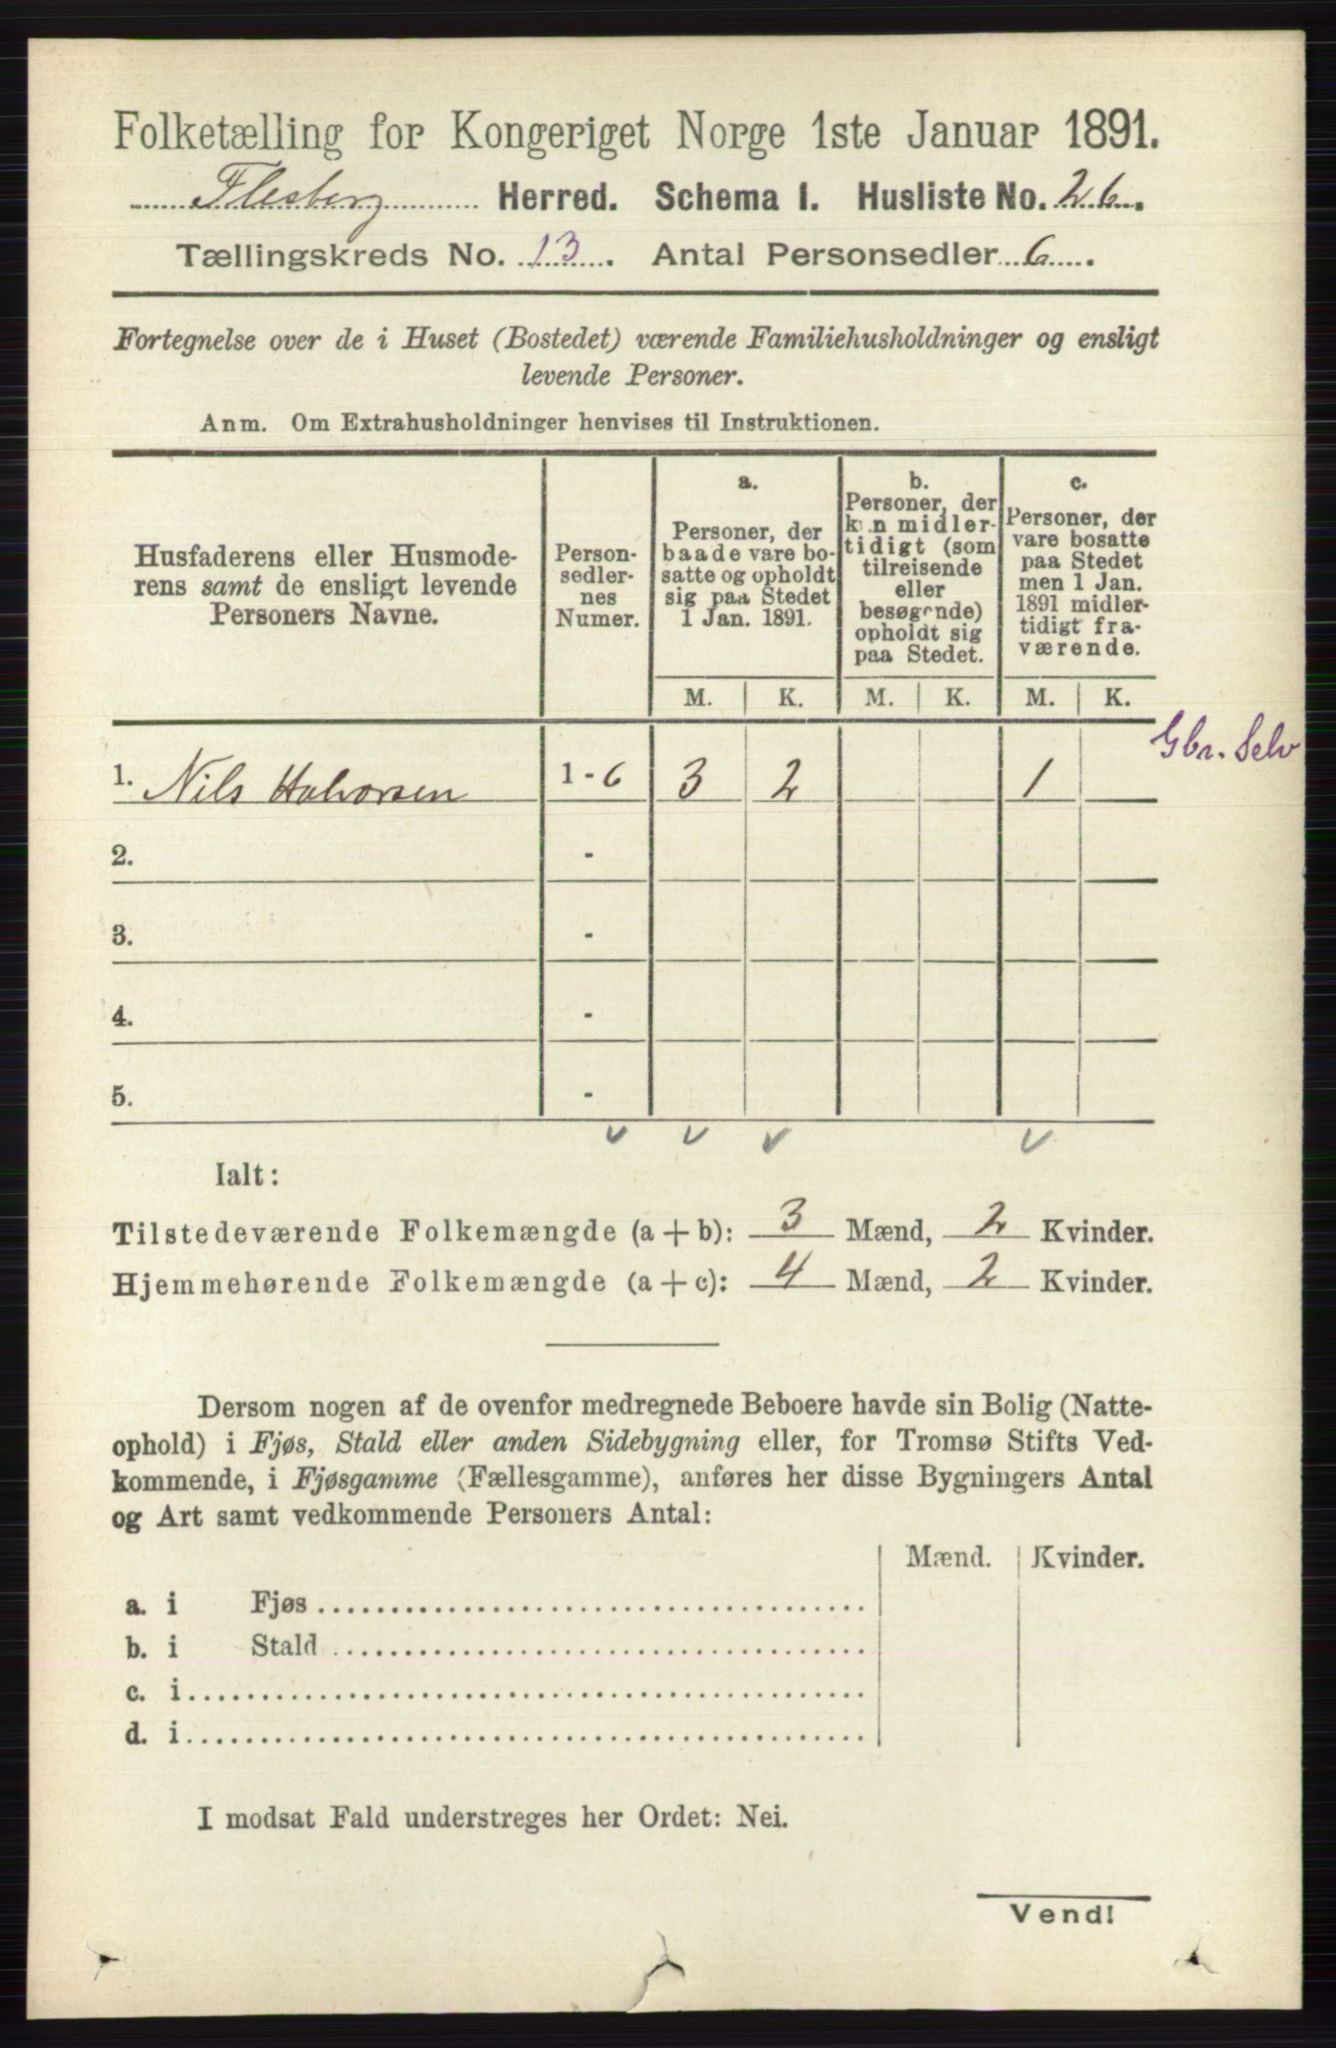 Folketælling for Kongeriget Norge 1ste Januar 1891.
Flesberg Herred. Schema I. Husliste No. 26.
Tællingskreds No. 13. Antal Personsedler 6.
Fortegnelse over de i Huset (Bostedet) værende Familiehusholdninger og ensligt
levende Personer.
Anm. Om Extrahusholdninger henvises til Instruktionen.
Husfaderens eller Husmode-
rens samt de ensligt levende
Personers Navne.
Person-
sedler-
nes
Numer.
a.
Personer, der
baade vare bo-
satte og opholdt
sig paa Stedet
1 Jan. 1891.
b.
Personer, der
kun midler-
tidigt (som
tilreisende
eller
besøgende)
opholdt sig
paa Stedet.
c.
Personer, der
vare bosatte
paa Stedet
men 1 Jan.
1891 midler-
tidigt fra-
værende.
M. K. M. K. M. K.
Gbr. Selv
1. Nils Halvorsen 1 - 6 3 2 1
2. -
3. -
4. -
5. -
Ialt:
Tilstedeværende Folkemængde (a + b): 3 Mænd, 2 Kvinder.
Hjemmehørende Folkemængde (a + c): 4 Mænd, 2 Kvinder.
Dersom nogen af de ovenfor medregnede Beboere havde sin Bolig (Natte-
ophold) i Fjøs, Stald eller anden Sidebygning eller, for Tromsø Stifts Ved-
kommende, i Fjøsgamme (Fællesgamme), anføres her disse Bygningers Antal
og Art samt vedkommende Personers Antal:
Mænd. Kvinder.
a. i Fjøs
b. i Stald
c. i
d. i
I modsat Fald understreges her Ordet: Nei.
Vend!